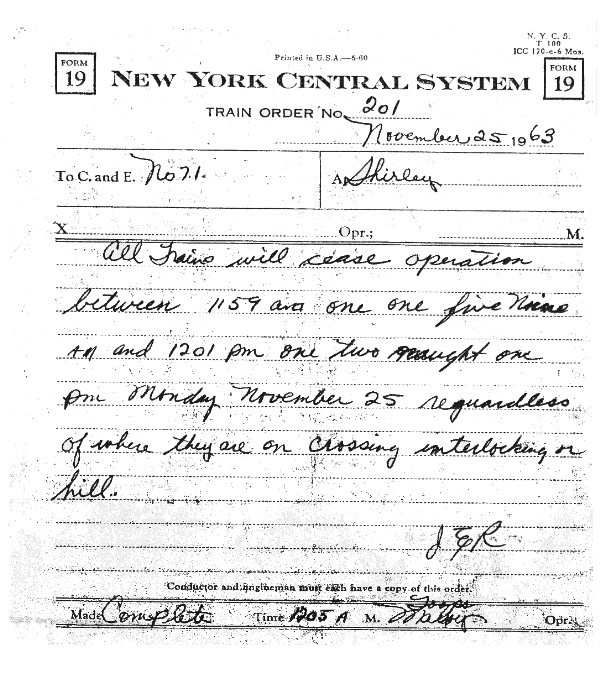 N. Y. C. S.
T 100
ICC 170-c-6 Mos.
Printed in U.S.A.—5-60
FORM
19
NEW YORK CENTRAL SYSTEM
FORM
19
TRAIN ORDER No. 201
November 25 1963
To C. and E. No 71.
At Shirley
X Opr.; M.
All Trains will cease operation
between 1159 am one one five Nine
am and 1201 pm one two naught one
pm Monday November 25 reguardless
of where they are on crossing interlocking or
hill.
J E R
Conductor and Engineman must each have a copy of this order.
Made Complete Time 1205 A M. Opr.